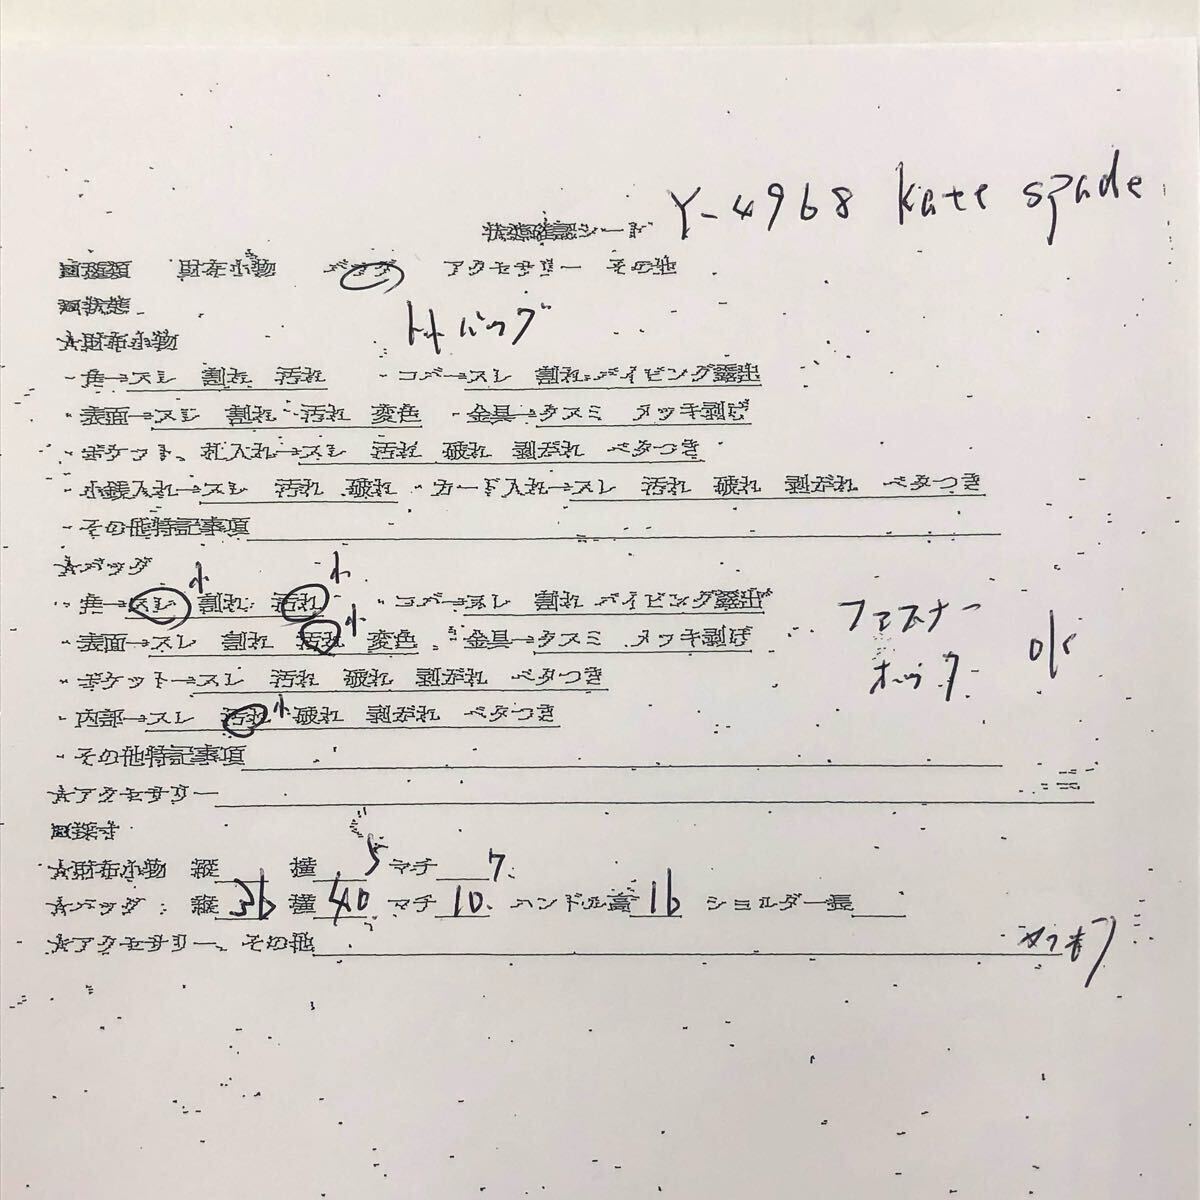 Y-4968 kate spade
状態確認シート
■種類 財布小物 バッグ アクセサリー その他
■状態
トートバッグ
☆財布小物
・角→スレ 割れ 汚れ ・コバ→スレ 割れ パイピング露出
・表面→スレ 割れ 汚れ 変色 ・金具→クスミ メッキ剥げ
・ポケット、札入れ→スレ 汚れ 破れ 剥がれ ベタつき
・小銭入れ→スレ 汚れ 破れ ・カード入れ→スレ 汚れ 破れ 剥がれ ベタつき
・その他特記事項
☆バッグ
・角→スレ 小 割れ 汚れ 小 ・コバ→スレ 割れ パイピング露出
・表面→スレ 割れ 汚れ 小 変色 ・金具→クスミ メッキ剥げ
ファスナー
ホック OK
・ポケット→スレ 汚れ 破れ 剥がれ ベタつき
・内部→スレ 汚れ 小 破れ 剥がれ ベタつき
・その他特記事項
☆アクセサリー
■採寸
☆財布小物 縦 横 5 マチ 7
☆バッグ: 縦 36 横 40 マチ 10 ハンドル高 16 ショルダー長
☆アクセサリー、その他